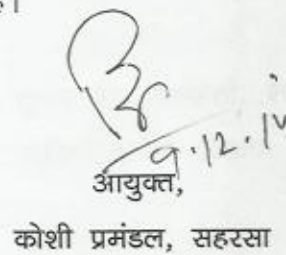 है।
9.12.14
आयुक्त,
कोशी प्रमंडल, सहरसा